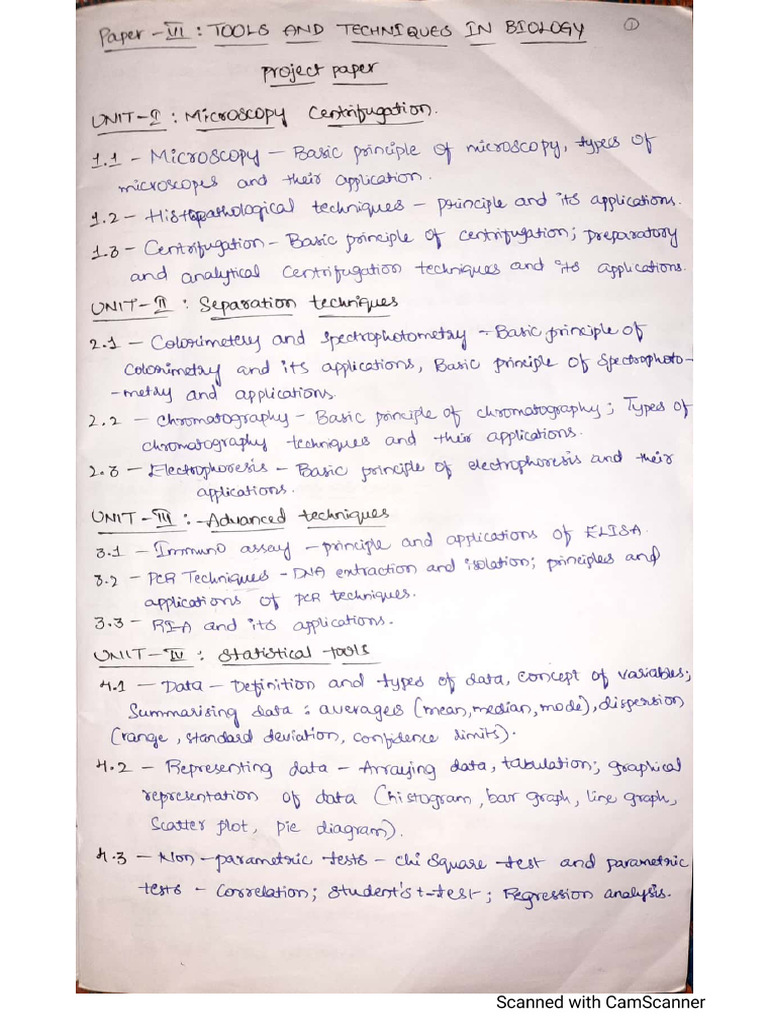 Paper - VI : TOOLS AND TECHNIQUES IN BIOLOGY ①
Project paper
UNIT-I : Microscopy Centrifugation.
1.1 - Microscopy - Basic principle of microscopy, types of
microscopes and their application.
1.2 - Histopathological techniques - principle and its applications.
1.3 - Centrifugation - Basic principle of centrifugation; Preparatory
and analytical centrifugation techniques and its applications.
UNIT-II : Separation techniques
2.1 - Colorimetery and spectrophotometry - Basic principle of
colorimetry and its applications, Basic principle of spectrophoto-
-metry and applications.
2.2 - chromatography - Basic principle of chromatography; Types of
chromatography techniques and their applications.
2.3 - Electrophoresis - Basic principle of electrophoresis and their
applications.
UNIT-III : -Advanced techniques
3.1 - Immuno assay - principle and applications of ELISA.
3.2 - PCR Techniques - DNA extraction and isolation; principles and
applications of PCR techniques.
3.3 - RIA and its applications.
UNIT-IV : Statistical tools
4.1 - Data - Definition and types of data, concept of variables;
Summarising data : averages (mean, median, mode), dispersion
(range, standard deviation, confidence limits).
4.2 - Representing data - Arraying data, tabulation; graphical
representation of data (histogram, bar graph, line graph,
Scatter plot, pie diagram).
4.3 - Non-parametric tests - chi square test and parametric
tests - Correlation; student's t-test; Regression analysis.
Scanned with CamScanner